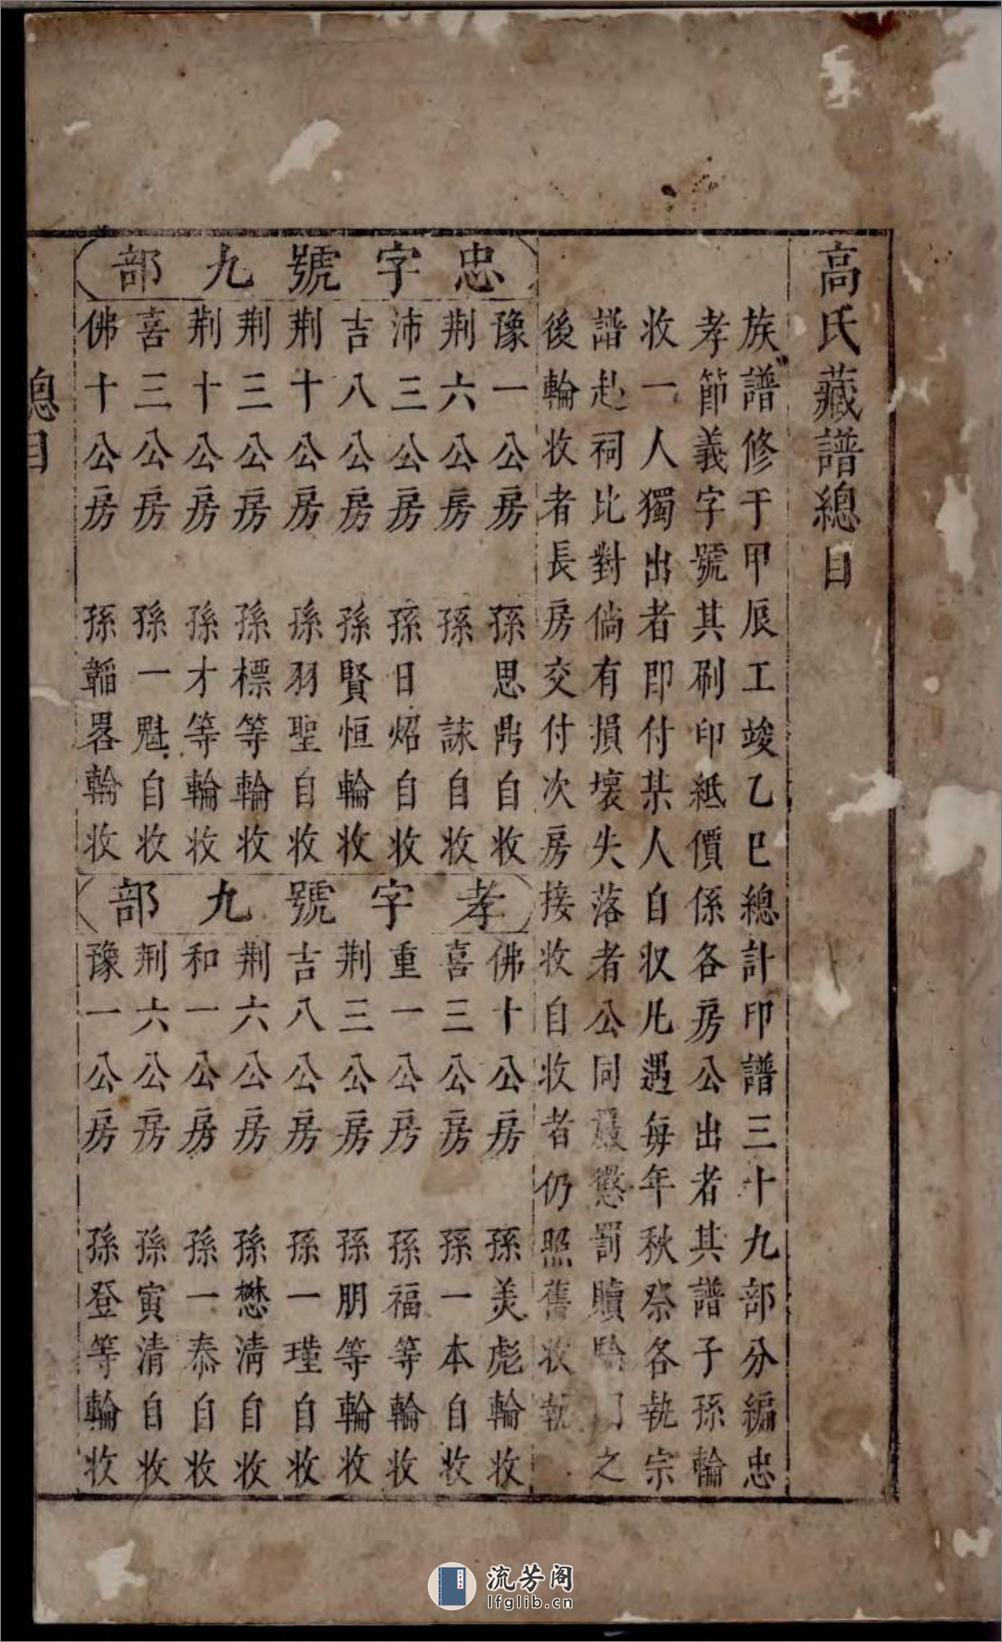 高氏藏譜總目
族譜修于甲辰工竣乙巳總計印譜三十九部分編忠
孝節義字號其刷印紙價係各房公出者其譜子孫輪
收一人獨出者即付某人自収凡遇每年秋祭各執宗
譜赴祠比對倘有損壞失落者公同嚴懲罰贖之
後輪收者長房交付次房接收自收者仍照舊收執
忠字號九部
豫一公房 孫思鼎自收
荆六公房 孫 誺自收
沛三公房 孫日炤自收
吉八公房 孫賢恒輪收
荆十公房 孫羽聖自收
荆三公房 孫標等輪收
荆十公房 孫才等輪收
喜三公房 孫一魁自收
佛十公房 孫韜畧輪收
孝字號九部
佛十公房 孫美彪輪收
喜三公房 孫一本自收
重一公房 孫福等輪收
荆三公房 孫朋等輪收
吉八公房 孫一瑾自收
荆六公房 孫懋清自收
和一公房 孫一泰自收
荆六公房 孫寅清自收
豫一公房 孫登等輪收
總目
流芳阁
lfglib.cn